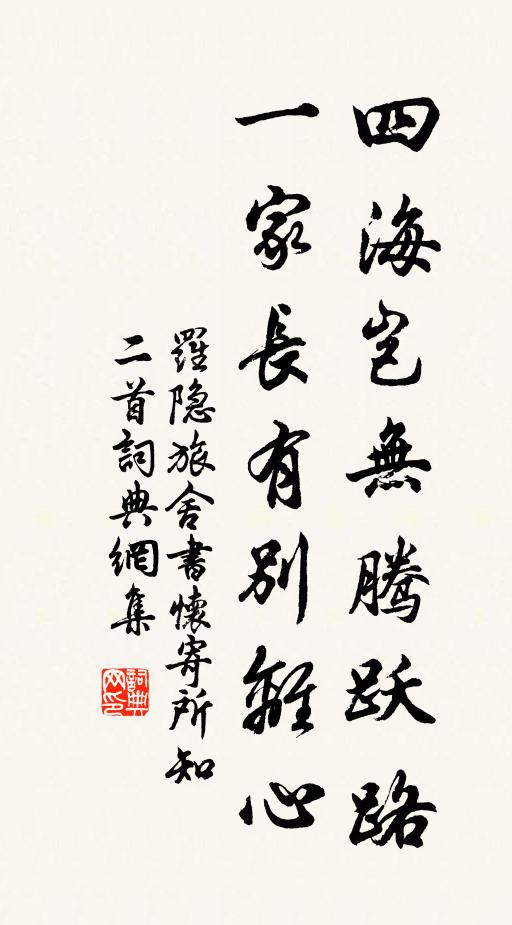 四海豈無腾跃路
一家長有別離心
羅隐旅舍書懷寄所知
二首詞典網集
詞典
网印